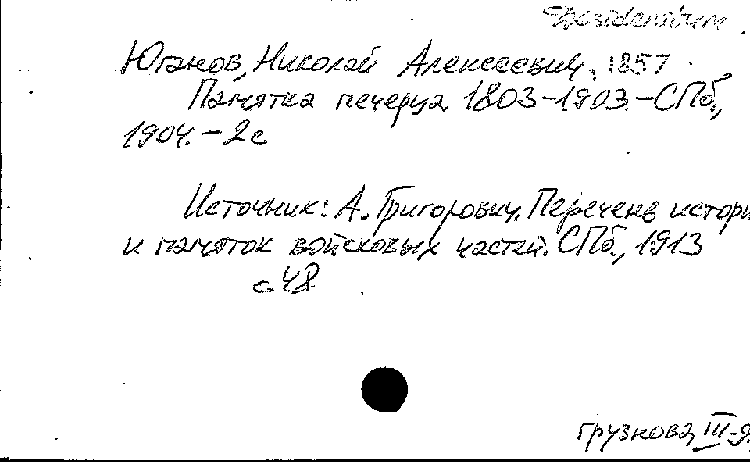 Desideratum
Юганов, Николай Алексеевич, 1857
Памятка печерца 1803-1903.-СПб.,
1904.-2с
Источник: А. Григорович. Перечень истори
и памяток войсковых частей. СПб., 1913
с.48
Грузнова, III-9